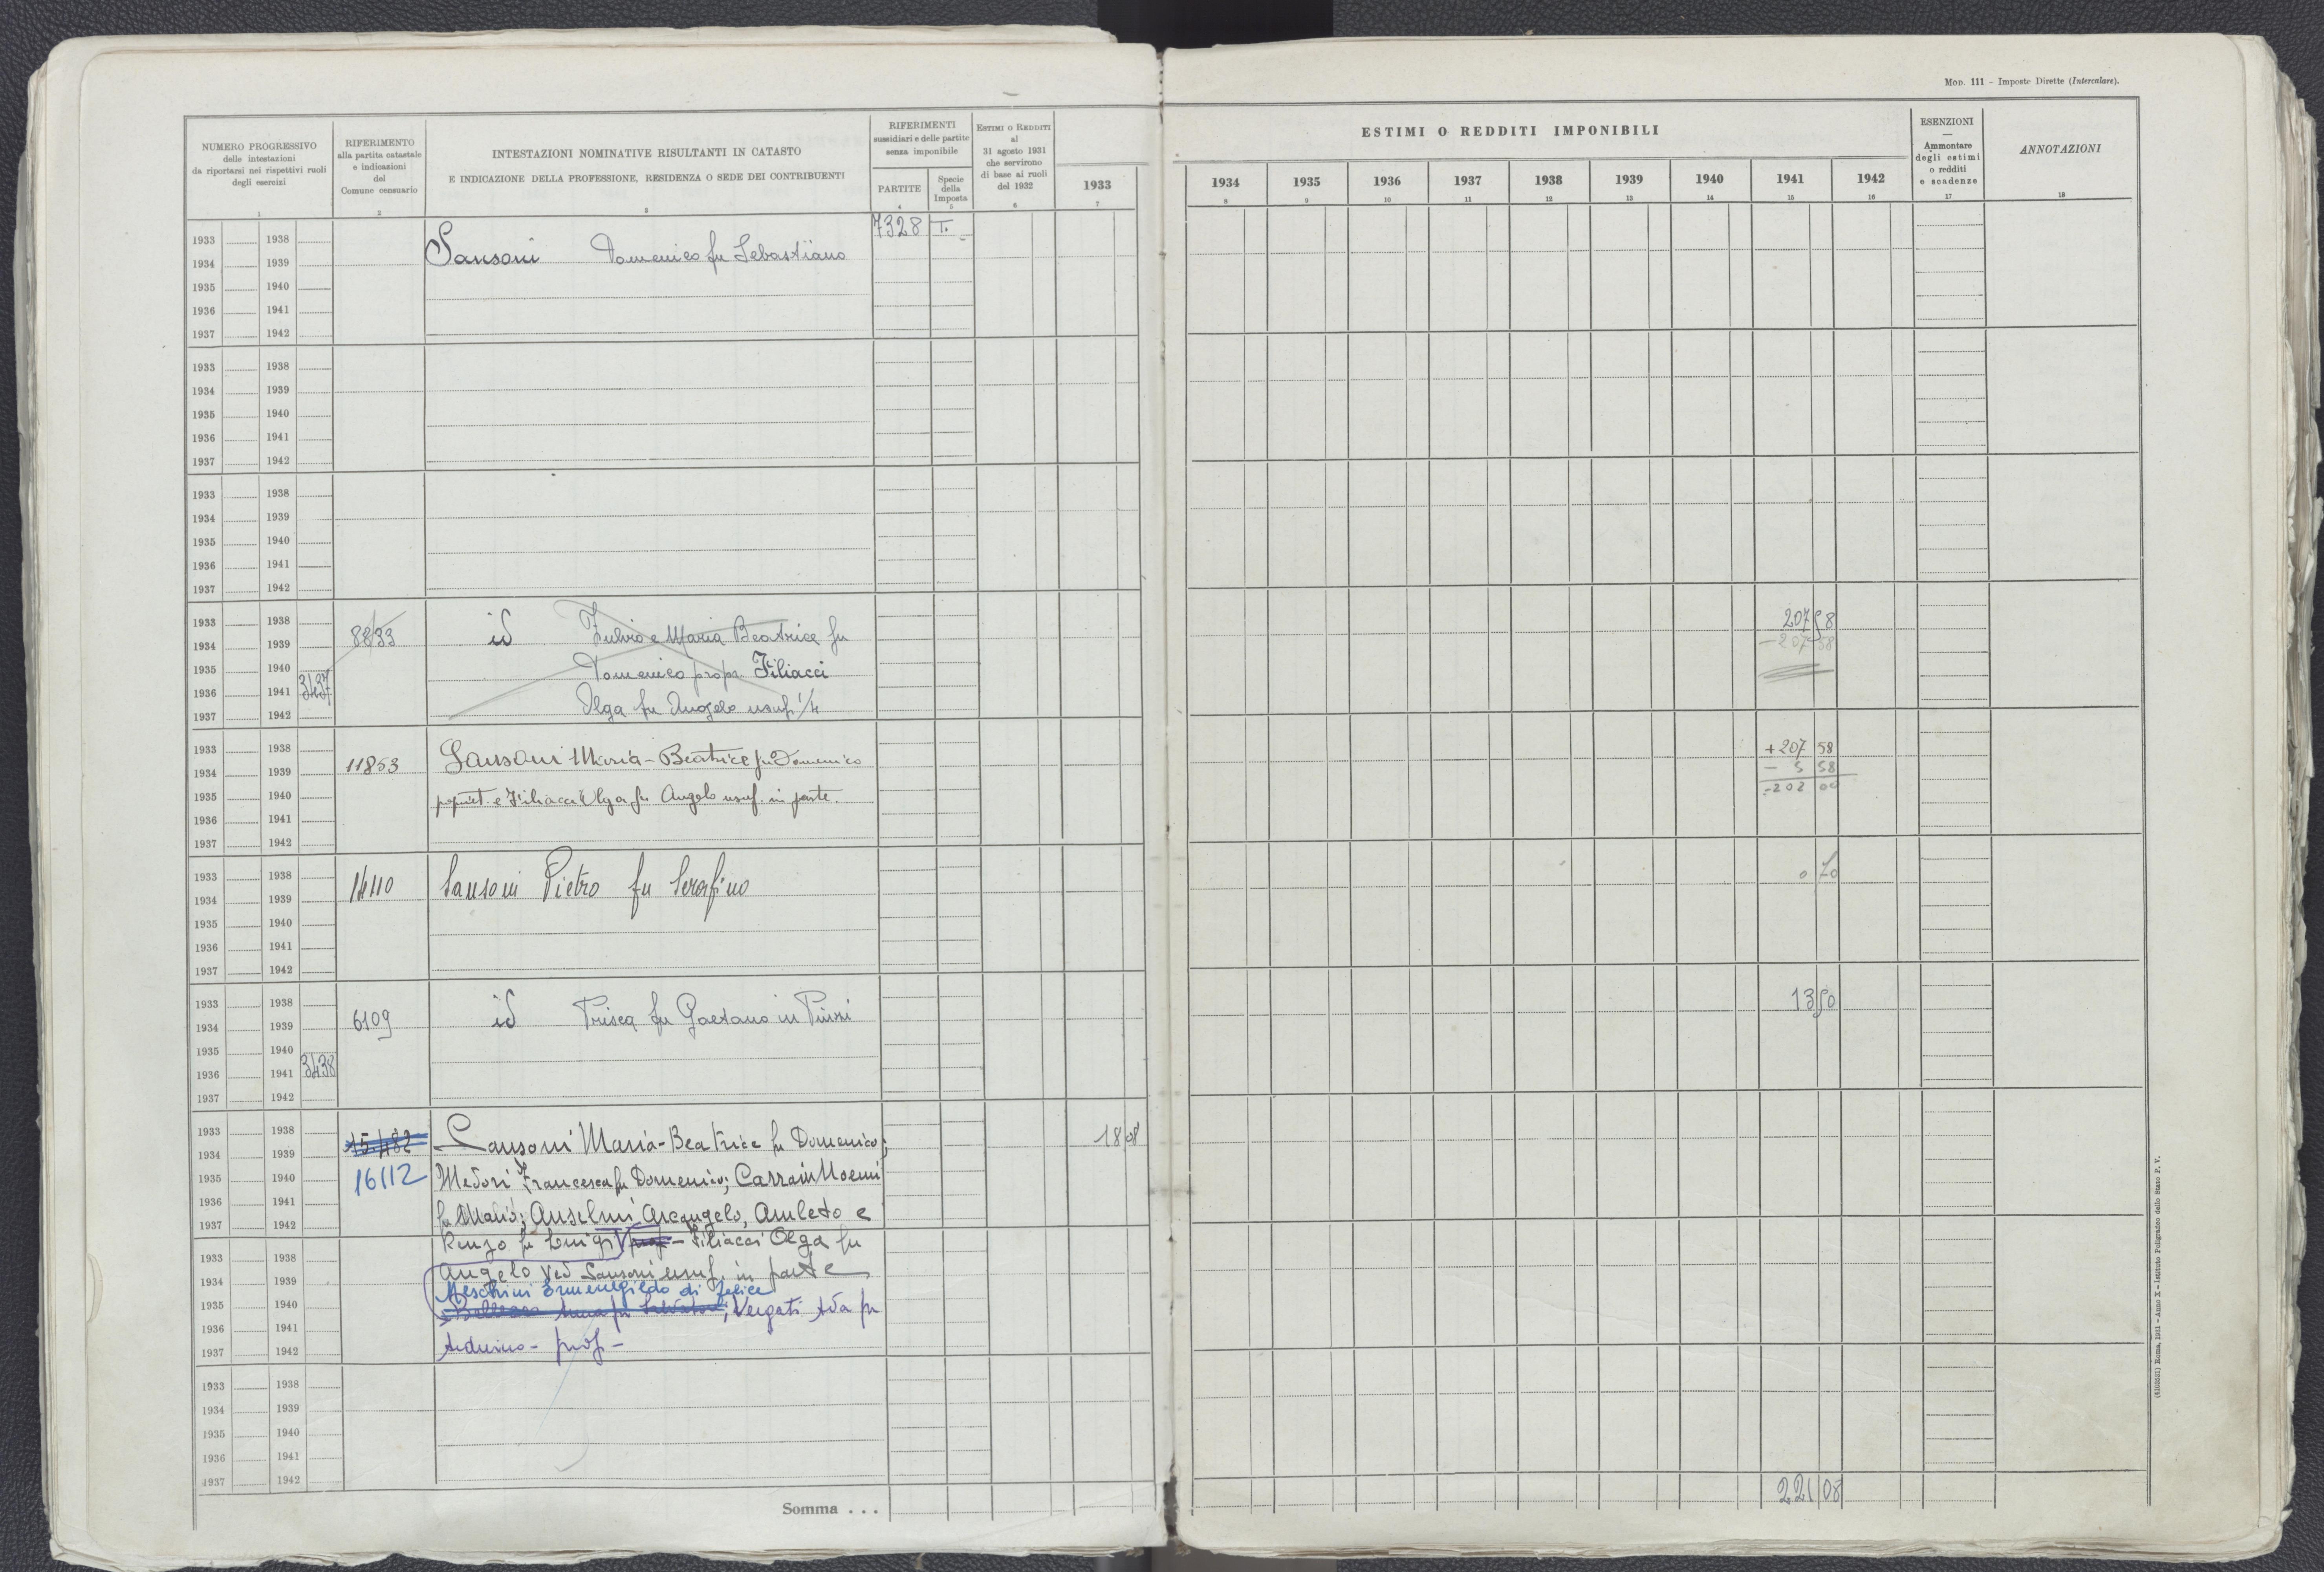 Mod. 111 - Imposte Dirette (Intercalare).
NUMERO PROGRESSIVO
delle intestazioni
da riportarsi nei rispettivi ruoli
degli esercizi
1
RIFERIMENTO
alla partita catastale
e indicazioni
del
Comune censuario
2
INTESTAZIONI NOMINATIVE RISULTANTI IN CATASTO
E INDICAZIONE DELLA PROFESSIONE, RESIDENZA O SEDE DEI CONTRIBUENTI
3
RIFERIMENTI
sussidiari e delle partite
senza imponibile
PARTITE
4
Specie
della
Imposta
5
ESTIMI O REDDITI
al
31 agosto 1931
che servirono
di base ai ruoli
del 1932
6
1933
7
ESTIMI O REDDITI IMPONIBILI
1934 1935 1936 1937 1938 1939 1940 1941 1942
8 9 10 11 12 13 14 15 16
ESENZIONI
—
Ammontare
degli estimi
o redditi
e scadenze
17
ANNOTAZIONI
18
7328 T.
1933 1938
Sansoni Domenico fu Sebastiano
1934 1939
1935 1940
1936 1941
1937 1942
1933 1938
1934 1939
1935 1940
1936 1941
1937 1942
1933 1938
1934 1939
1935 1940
1936 1941
1937 1942
1933 1938 207 58
1934 1939 8833 id Fulvio e Maria Beatrice fu - 207 58
1935 1940 Domenico propr. Filiacci
1936 1941 3437
1937 1942 Olga fu Angelo usuf. 1/4
1933 1938 + 207 58
1934 1939 11853 Sansoni Maria-Beatrice fu Domenico - 5 58
1935 1940 propriet. e Filiacci Olga fu Angelo usuf. in parte. - 202 00
1936 1941
1937 1942
1933 1938 0 70
1934 1939 14110 Sansoni Pietro fu Serafino
1935 1940
1936 1941
1937 1942
1933 1938 13 50
1934 1939 6109 id Prisca fu Gaetano in
1935 1940
1936 1941 3438
1937 1942
1933 1938 15482 Sansoni Maria-Beatrice fu Domenico; 18 08
1934 1939
1935 1940 16112 Medori Francesca fu Domenico; Noemi
1936 1941
1937 1942 fu Mario; Anselmi Arcangelo, Amleto e
Renzo fu Luigi - Filiacci Olga fu
1933 1938
1934 1939 Angelo ved Sansoni usuf. in parte
Meschini Ermenegildo di Felice
1935 1940 ; Vergati Ada fu
1936 1941
1937 1942 Arduino - prop -
1933 1938
1934 1939
1935 1940
1936 1941
1937 1942
Somma . . . 221 08
(4103531) Roma, 1931 - Anno X - Istituto Poligrafico dello Stato P. V.